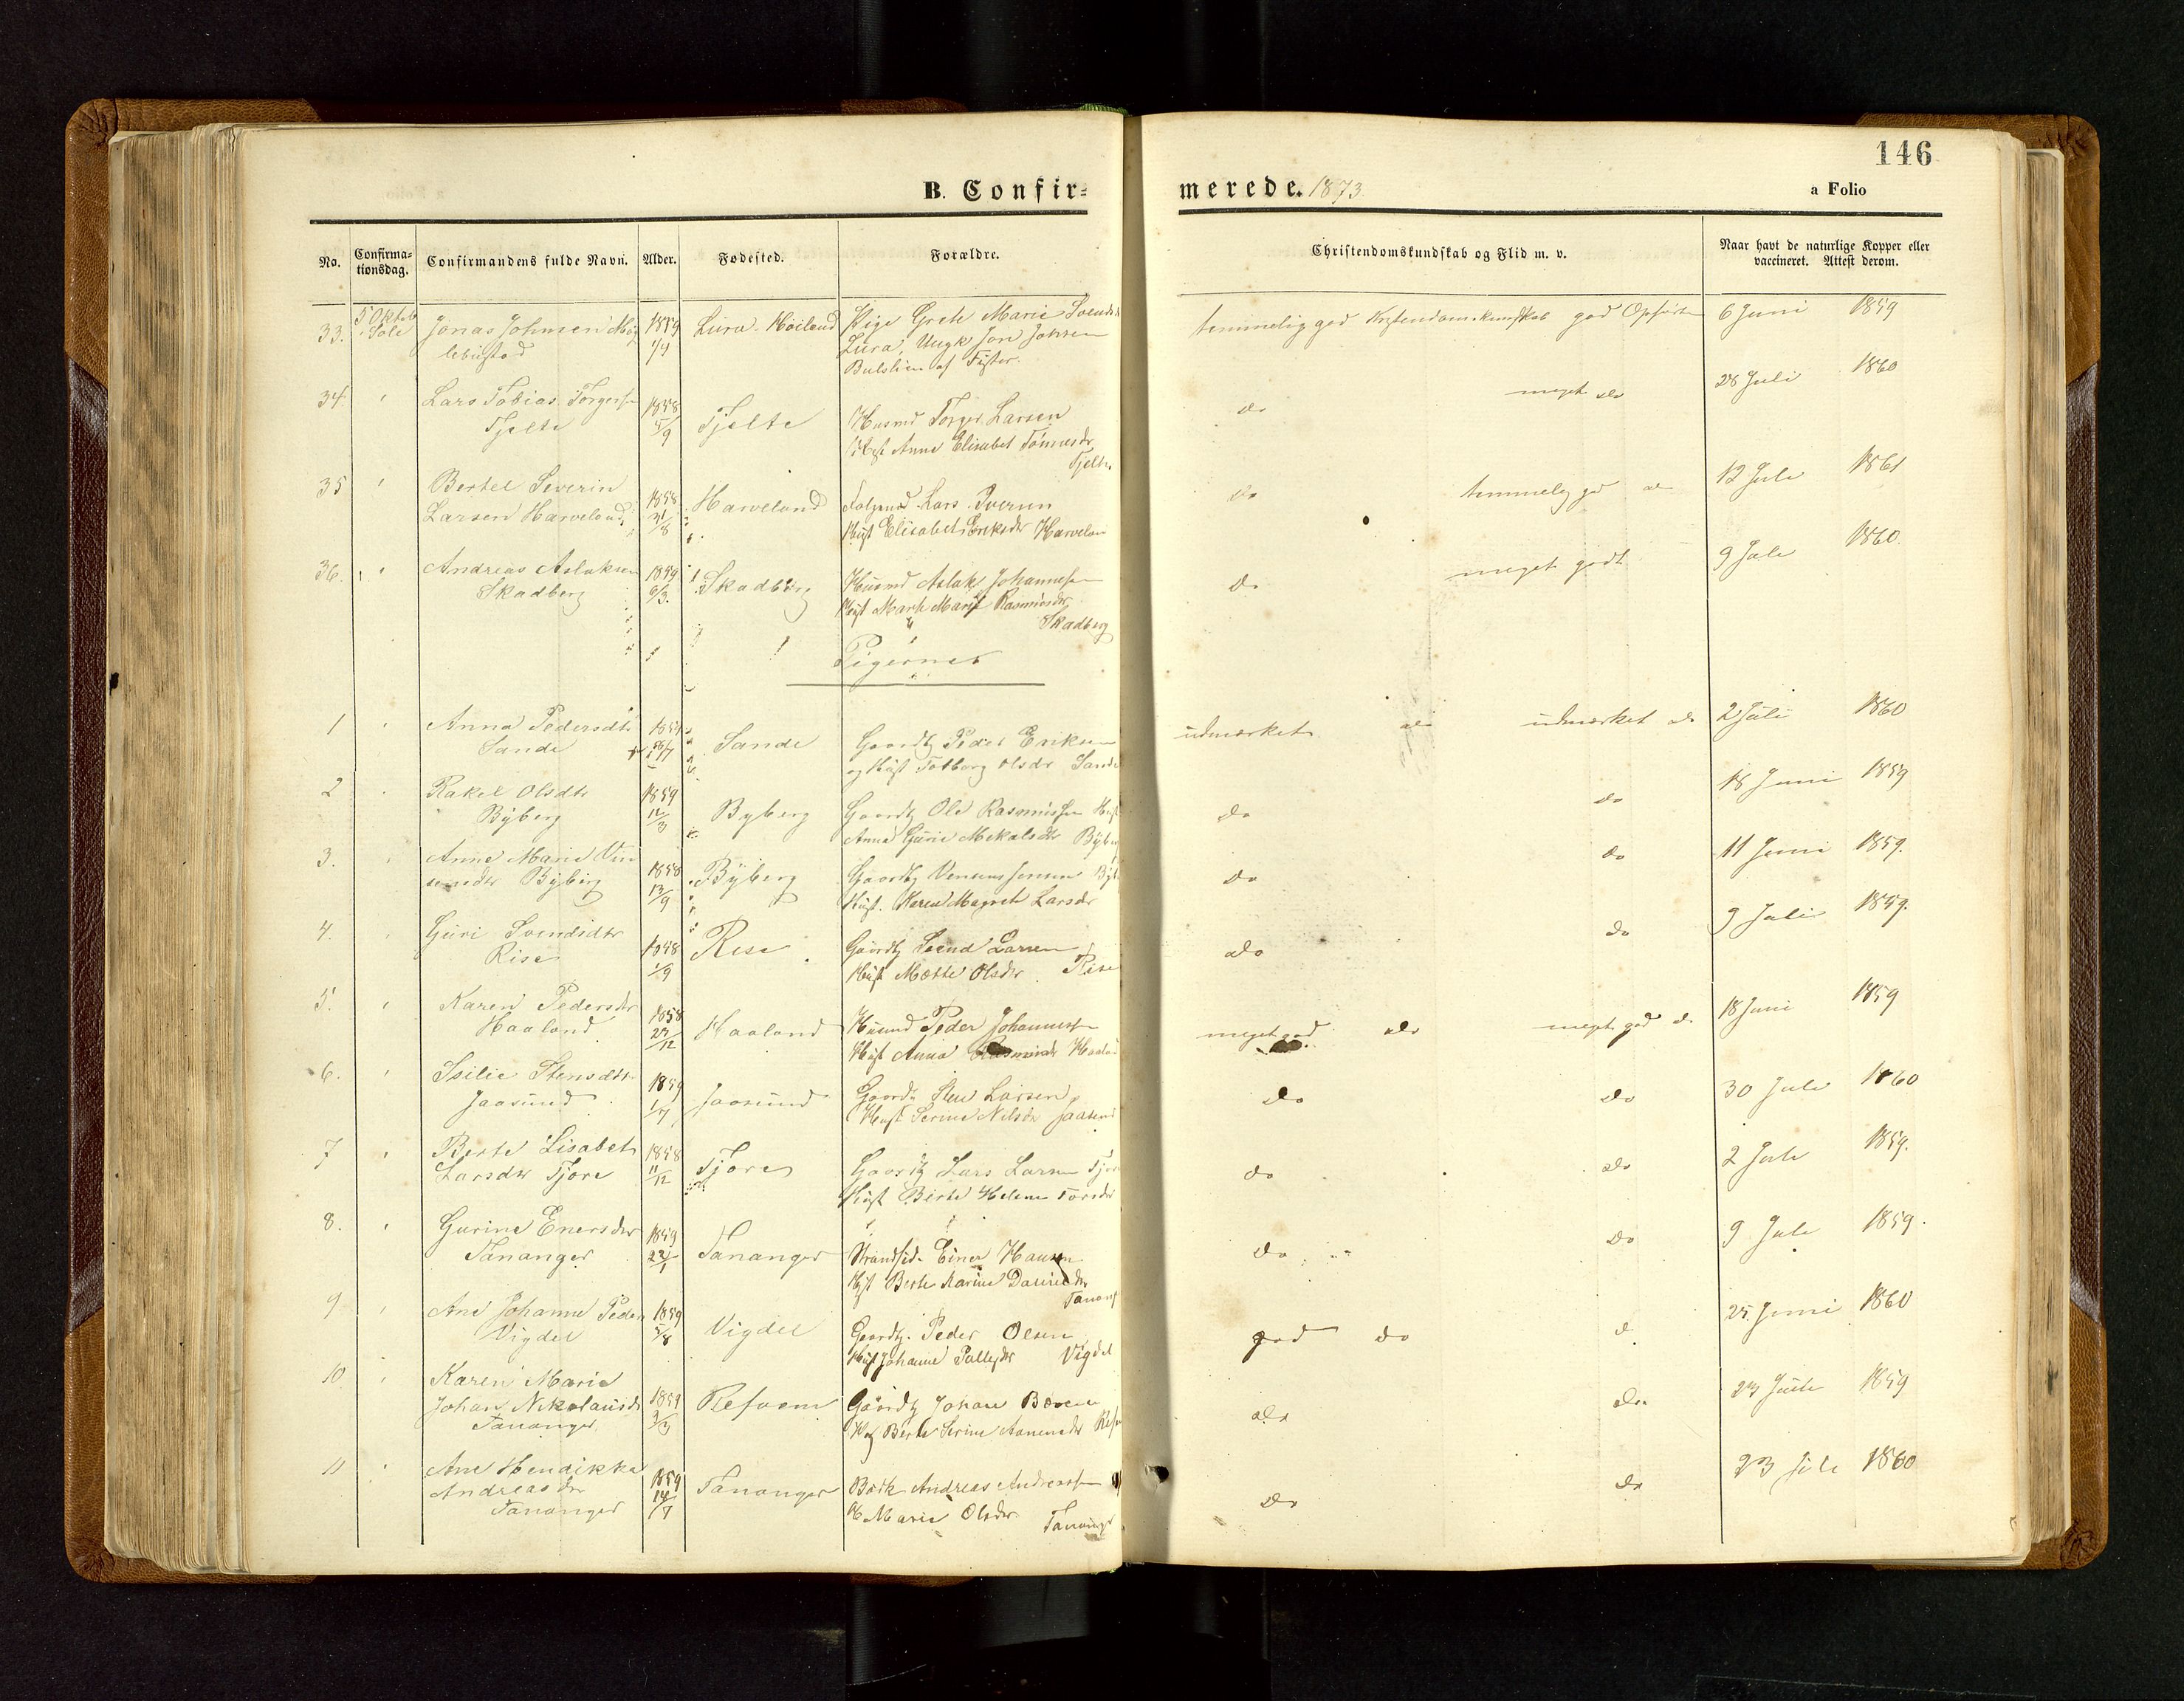 146
B. Confir=
merede. 1873.
a Folio
No.
Confirma=
tionsdag.
Confirmandens fulde Navn.
Alder.
Fødested.
Forældre.
Christendomskundskab og Flid m. v.
Naar havt de naturlige Kopper eller
vaccineret. Attest derom.
33.
5 Oktob
Sole
Jonas Johnsen
1859
Lura Høiland
Pige Grete Marie
Lura, Ungk Jon Johnsen
af Fister
temmelig god Kristendomskundskab god Opførsel
6 Juni 1859
34.
Lars Tobias Torgersen
Tjelte
1858
5/9
Tjelte
Husmd Torger Larsen
Hust Anne Elisabet Tønnesdr
Tjelte
do
meget do
28 Juli 1860
35
Bertel Severin
Larsen Harveland
1858
31/8
Harveland
Lars Iversen
Hust Elisabet Eriksdr Harveland
do
temmelig god do
12 Juli 1861
36.
Andreas Aslaksen
Skadberg
1859
6/3.
Skadberg
Husmd Aslak Johannesen
Hust Marte Marie Rasmusdr
Skadberg
do
meget godt
9 Juli 1860.
Pigerne
1
Anna Pedersdtr
Sande
1859
Sande
Gaardbr Peder Eriksen
og Hust Tolborg Olsdr Sande
udmærket do
udmærket do
2 Juli 1860
2
Rakel Olsdtr
Byberg
1859
12/3
Byberg
Gaardbr Ole Rasmussen Hust
Anne Gurie Mikalsdtr Byberg
do
do
18 Juni 1859
3.
Anne Marie
Byberg
1858
13/9
Byberg
Gaardbr Jensen
Hust. Karen Magrete Larsdr
do
do
11 Juni 1859.
4.
Guri Svendsdtr
Rise
1858
1/9
Rise
Gaardbr Svend Larsen
Hust Mætte Olsdr Rise
do
do
9 Juli 1859.
5.
Karen Pedersdtr
Haaland
1858
22/12
Haaland
Husmd Peder Johannesen
Hust Anna Rasmusdr Haaland
meget god do
meget god do
18 Juni 1859
6.
Silie Stensdtr
Jaasund
1859
Jaasund
Gaardbr Sten Larsen
Hust Serine Nilsdr Jaasund
do
do
30 Juli 1860
7
Berte Lisabet
Larsdtr Tjore
1858
11/12
Tjore
Gaardbr Lars Larsen Tjore
Hust Berte Helene
do
do
2 Juli 1859.
8.
Gurine Enersdtr
Tananger
1859
22/1
Tananger
Strandsid. Einer Hansen
Hust Berte Karine
Tanang
do
do
9 Juli 1859.
9
Ane Johanne Peders
Vigdel
1859
5/8
Vigdel
Gaardbr. Peder Olsen
Hust Johanne Pallesdr Vigdel
god do
d
25 Juni 1860
10
Karen Marie
Johan Nikolausdr
Tananger
1859
3/3
Refsnes
Gaardbr Johan
Hust Berte Serine
do
do
23 Juli 1859
11
Ane Hendikke
Andreasdr
Tananger
1859
14/7
Tananger
Andreas Andreassen
H Marie Olsdr
Tananger
do
do
23 Juli 1860